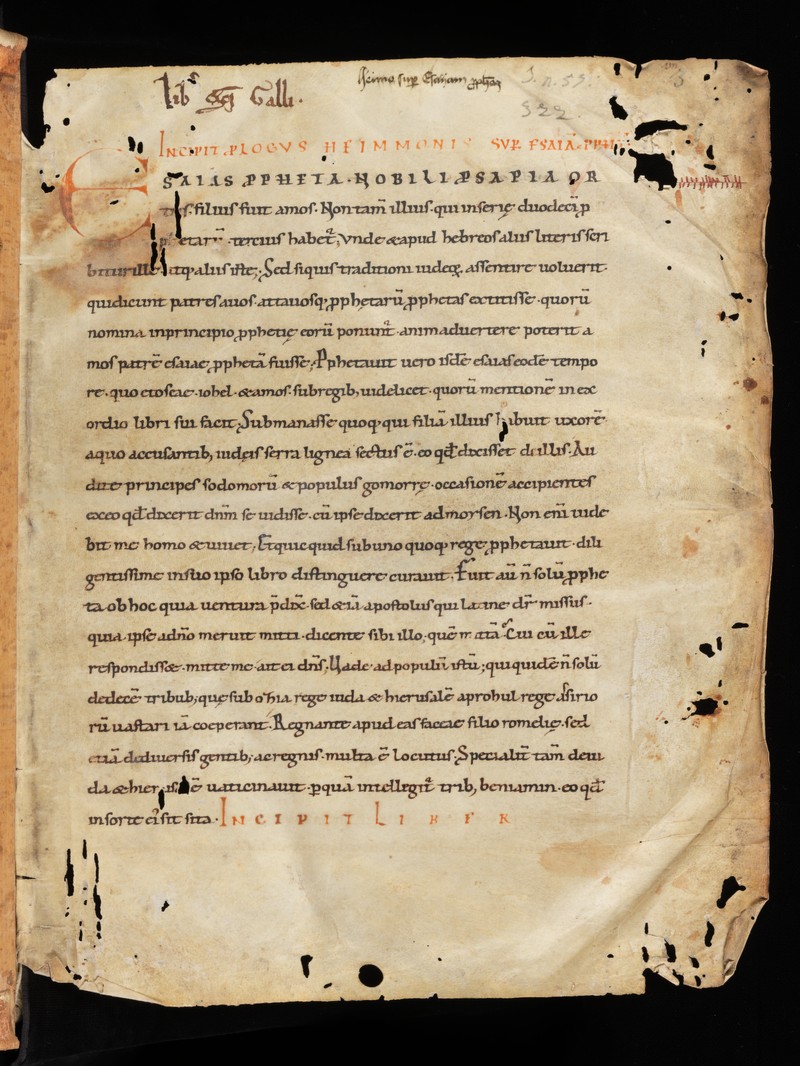 Lib sci Galli.
Heimo sup Esaiam pphetā
322
INCIPIT PLOGVS HEIMMONIS SVP ESAIA PPH
ESAIAS PPHETA. NOBILI PSAPIA OR
filius fuit amos. Non tam̄ illius. qui in serie duodeci p
etarū tercius habet; Vnde & apud hebreos aliis litteris scri
bitur ille atq; aliis iste; Sed siquis traditioni iudeoꝝ assentire uoluerit.
qui dicunt patres auos. attauosq; pphetarū pphetas extitisse. quorū
nomina in principio pphetię eorū ponunt. animaduertere poterit a
mos patrē esaiae pphetā fuisse; Pphetauit uero isdē esaias eodē tempo
re. quo et oseae. iohel. & amos. sub regib; uidelicet. quorū mentionē in ex
ordio libri sui facit; Sub manasse quoq; qui filiā illius habuit uxorē
a quo accusantib; iudęis serra lignea sectus ē. eo qđ dixisset de illis. Au
dite principes sodomorū & populus gomorrę. occasionē accipientes
ex eo qđ dixerit dnm̄ se uidisse. cū ipse dixerit ad moysen. Non eni uide
bit me homo & uiuet; Et quicquid sub unoquoq; rege pphetauit. dili
gentissime in suo ipso libro distinguere curauit. Fuit aū n̄ solū pphe
ta ob hoc quia uentura p̄dix̄. sed & iā apostolus qui latine dr̄ missus.
quia ipse a dn̄o meruit mitti. dicente sibi illo. quē mittā. Cui cū ille
respondisset. mitte me. ait ei dn̄s. Uade ad populū istū; qui quidē n̄ solū
de decē tribub; quę sub ozia rege iuda & hierusalē a phul rege assirio
rū uastari iā coeperant. Regnante apud eas faceae filio romelię. sed
etiā de diuersis gentib; ac regnis. multa ē locutus; Specialit̄ tam̄ de iu
da & hierusalē uaticinauit. p quā intellegit̄ trib; beniamin. eo qđ
in sorte ei' sit sita. INCIPIT LIBER